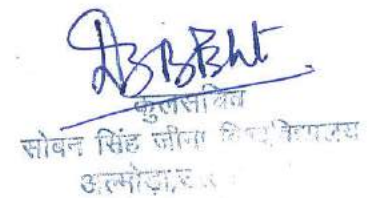 DBBBht
कुलसचिव
सोबन सिंह जीना विश्वविद्यालय
अल्मोड़ा